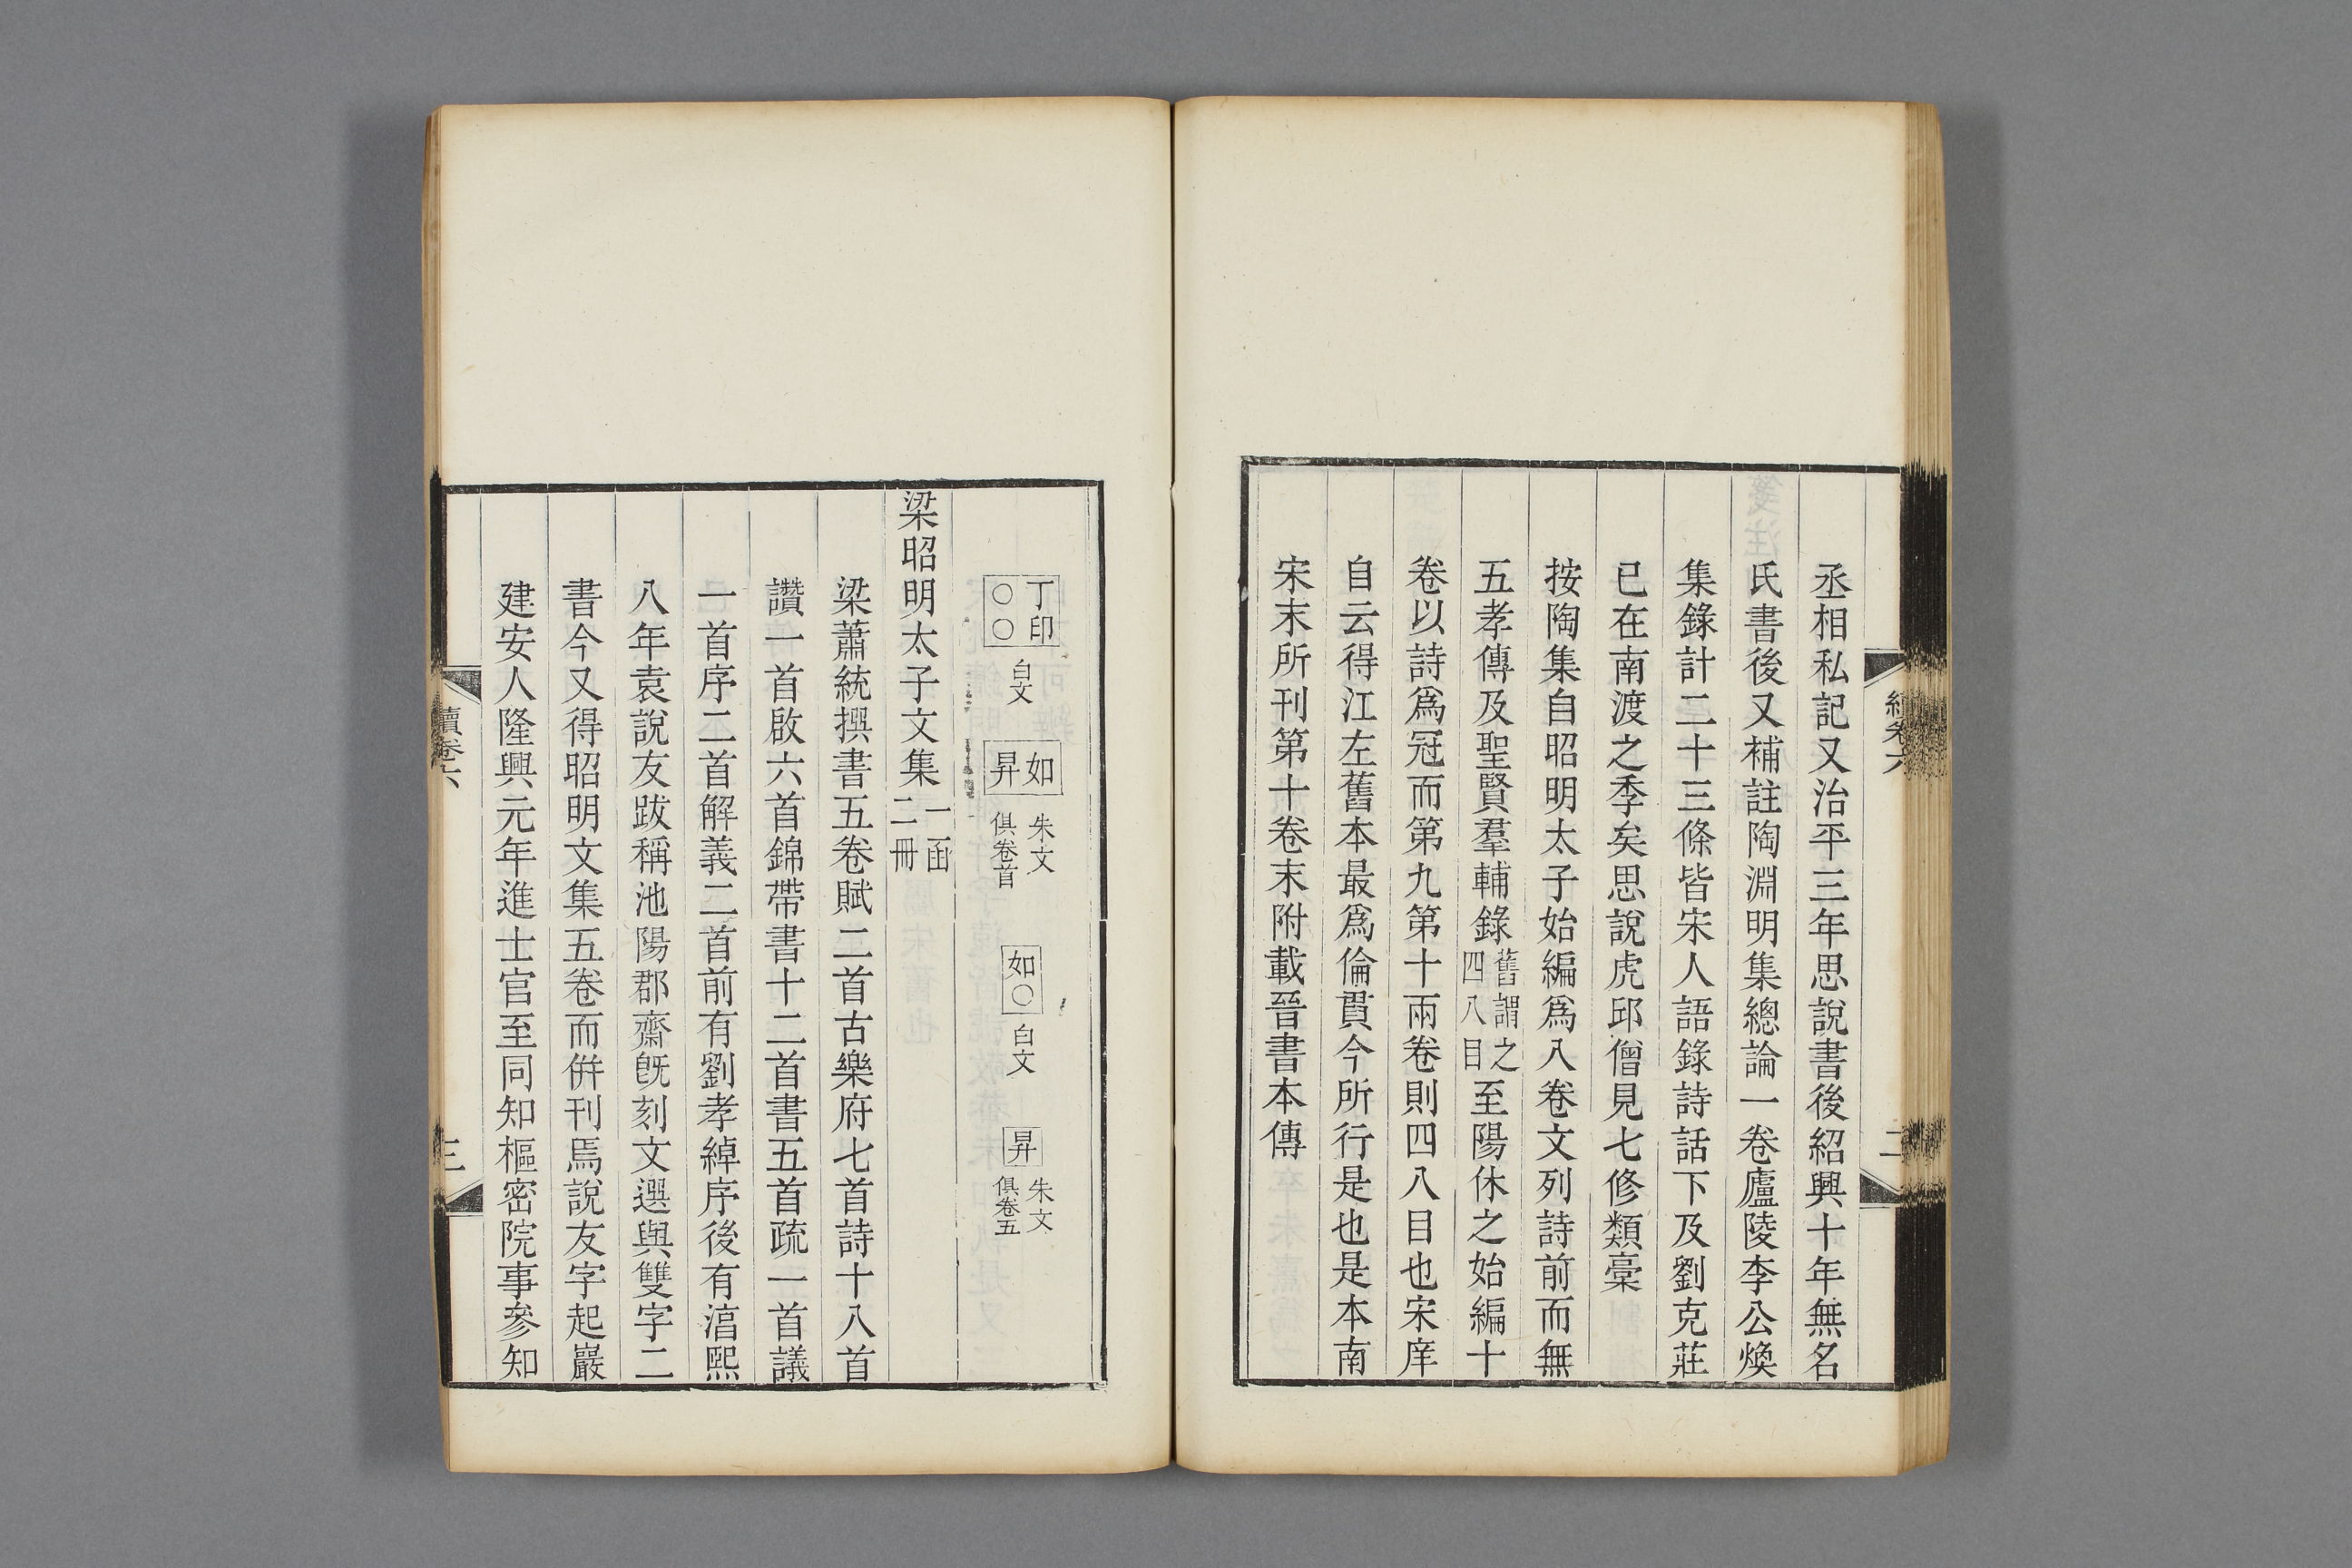 丞相私記又治平三年思說書後紹興十年無名
氏書後又補註陶淵明集總論一卷廬陵李公煥
集錄計二十三條皆宋人語錄詩話下及劉克莊
已在南渡之季矣思說虎邱僧見七修類稾
按陶集自昭明太子始編爲八卷文列詩前而無
五孝傳及聖賢羣輔錄舊謂之四八目至陽休之始編十
卷以詩爲冠而第九第十兩卷則四八目也宋庠
自云得江左舊本最爲倫貫今所行是也是本南
宋末所刊第十卷末附載晉書本傳
續卷六
二
丁印〇〇 白文 如昇 朱文 俱卷首 如〇 白文 昇 朱文 俱卷五
梁昭明太子文集一函二冊
梁蕭統撰書五卷賦二首古樂府七首詩十八首
讚一首啟六首錦帶書十二首書五首疏一首議
一首序二首解義二首前有劉孝綽序後有湻熙
八年袁說友跋稱池陽郡齋旣刻文選與雙字二
書今又得昭明文集五卷而倂刊焉說友字起巖
建安人隆興元年進士官至同知樞密院事參知
續卷六
三